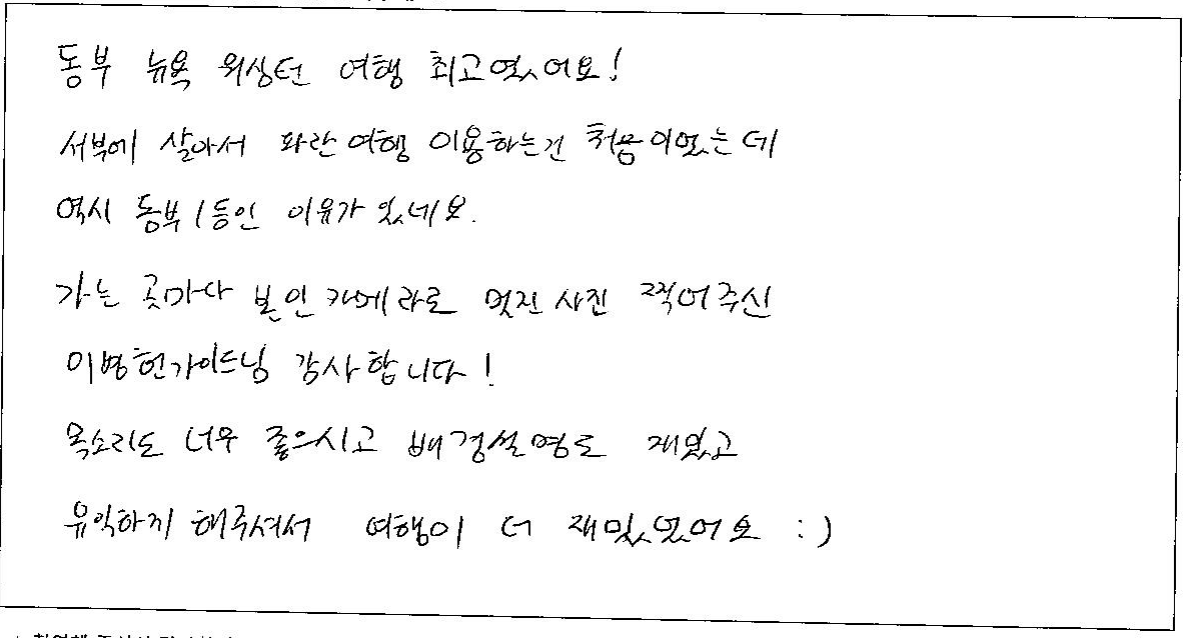 동부 뉴욕 워싱턴 여행 최고였어요!
서부에 살아서 파란여행 이용하는건 처음이였는데
역시 동부1등인 이유가 있네요.
가는 곳마다 본인카메라로 멋진사진 찍어주신
이병헌가이드님 감사합니다!
목소리도 너무 좋으시고 배경설명도 재밌고
유익하게 해주셔서 여행이 더 재밌었어요 :)